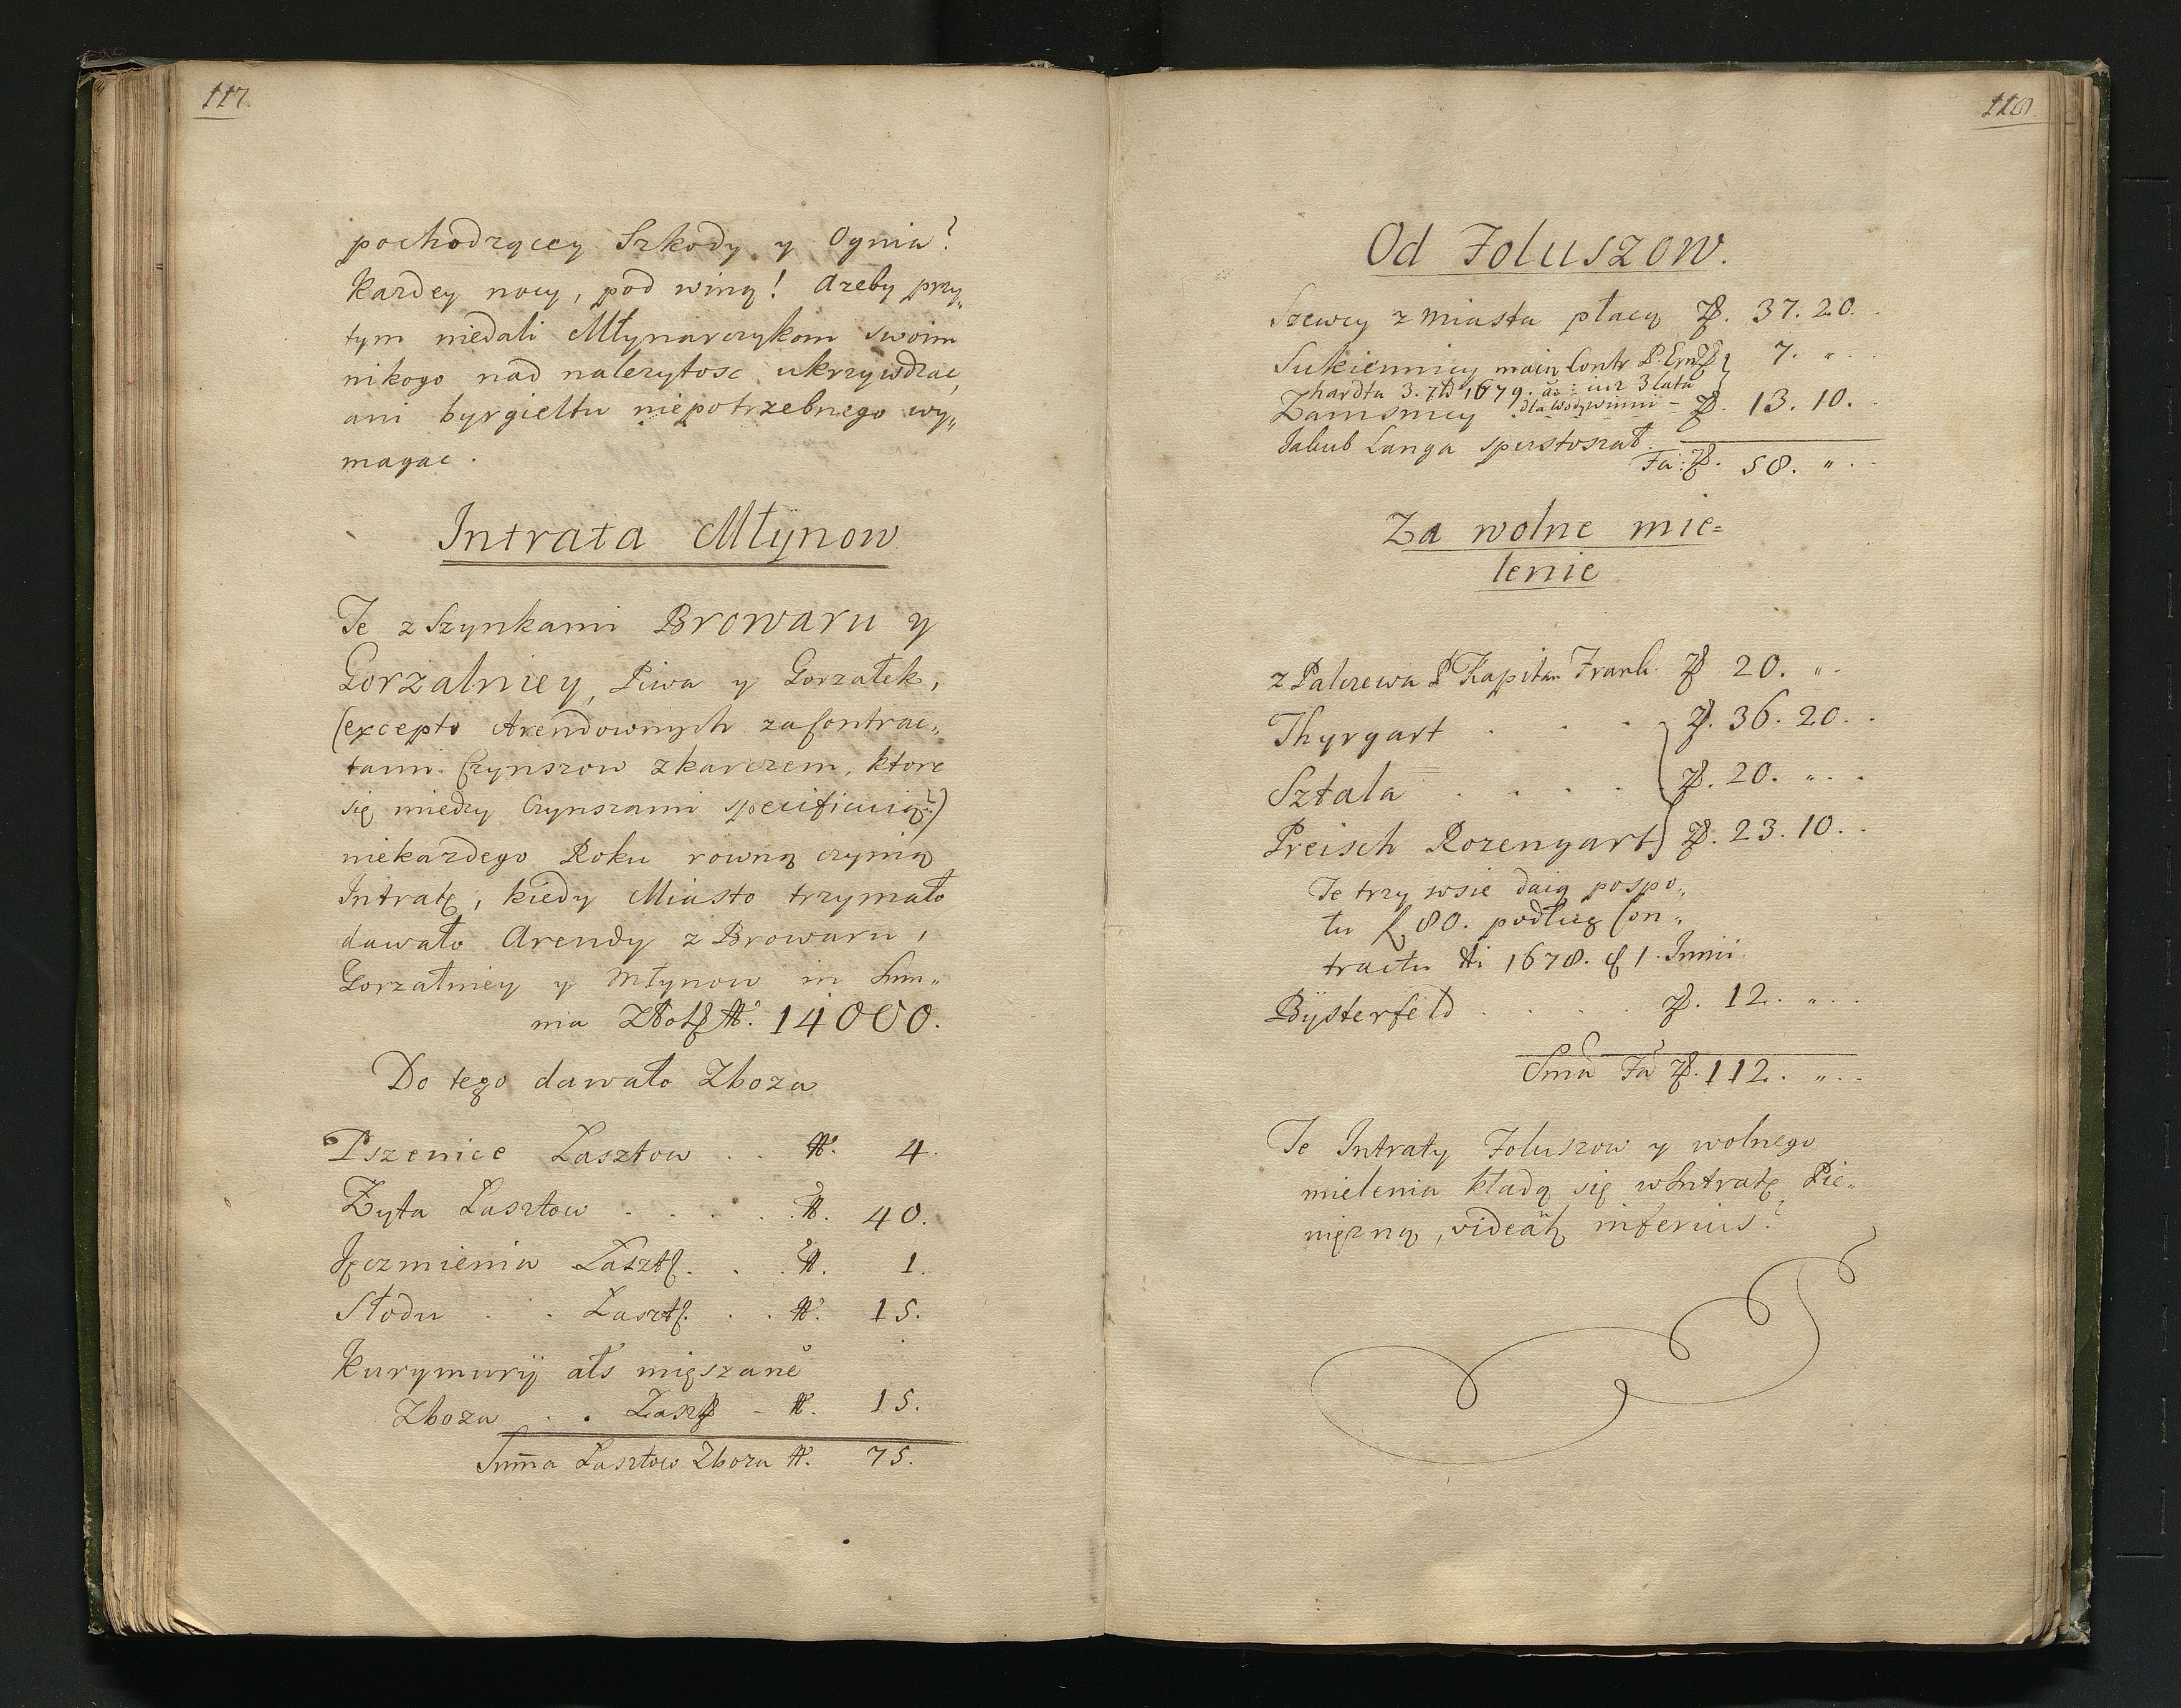 117.
pochodzącey Szkody y Ognia
Kazdey nocy, pod winą! Azeby przy„
tym niedali Młynarczykom swoim
nikogo nad nalezytosc ukrzywdzac,
ani byrgieltu niepotrzebnego wy„
magac.
Intrata Młÿnow
Te z Szynkami Browaru y
Gorżalniey, Piwa y Gorzałek,
(excepto Arendownych za Contrac„
tami Czynszow z karczem, ktore
się miedzy Czynszami specificuią)
niekazdego Roku rowną czynią
Intratę, kiedy Miasto trzymało
dawało Arendy z Browaru,
Gorzałniey y Młynow in Sum„
ma 14000.
Do tego dawało Zboza
Pszenice Lasztow . . 4.
Zyta Lasztow . . . . 40.
Jęczmienia Laszt . . 1.
Słodu . . Laszt . . 15.
Kurymurÿ als mięszane
Zboza . . Laszt - 15.
Sum̄a Lasztow Zboza 75.
118.
Od Foluszow.
Szewcy z Miasta płacą 37. 20.
Sukiennicy maią Contr P. Ern 7. „
hardta 3. 1679. 3 lata
Zamsnicy 13. 10.
Jakub Langa spustoszał.
Fa: 58. „
Za wolne mie=
lenie
z Palczewa P Kapitan Frank. 20. „
Thyrgart . . . 36. 20.
Sztala . . . . 20. „
Preisch Rozengart 23. 10.
Te trzy wsie daią pospo„
tu 80. podług Con„
tractu 1678. 1. Junii
Bÿsterfeld . . . . 12. „
Sma Fa 112. „
Te Intraty Foluszow y wolnego
mielenia kładą się w Intratę Pie„
nięzną, inferius.